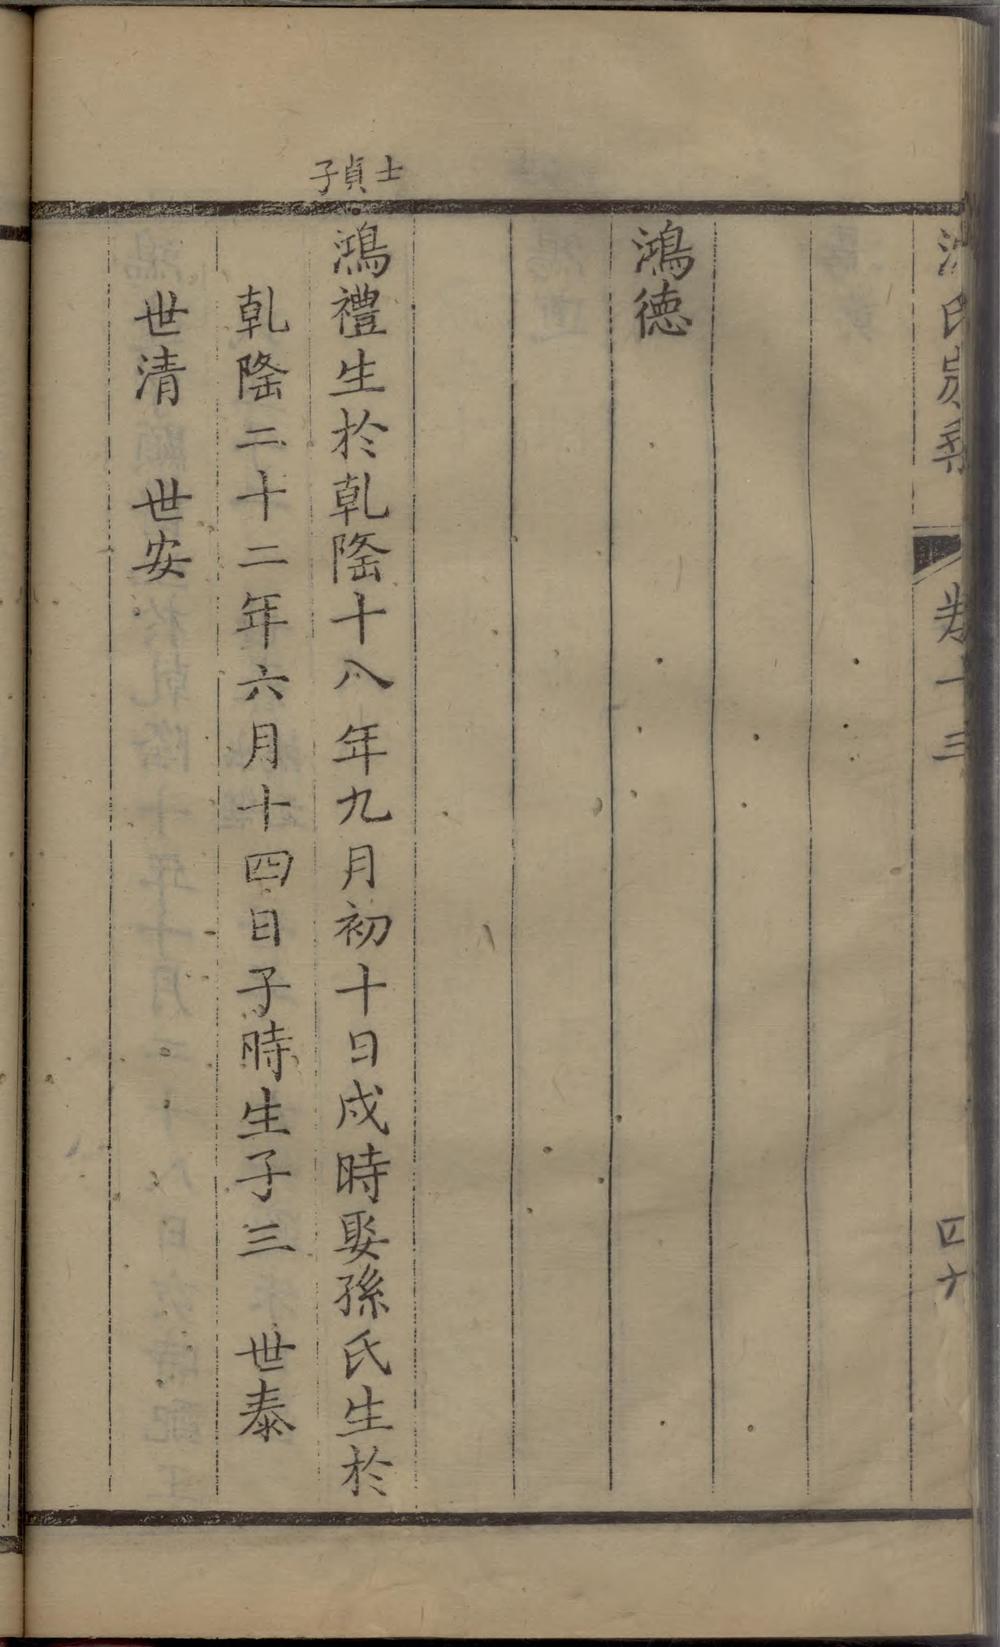 氏 卷十三 四十
鴻德
士貞子
鴻禮生於乹隆十八年九月初十日戌時娶孫氏生於
乹隆二十二年六月十四日子時生子三 世泰
世清 世安